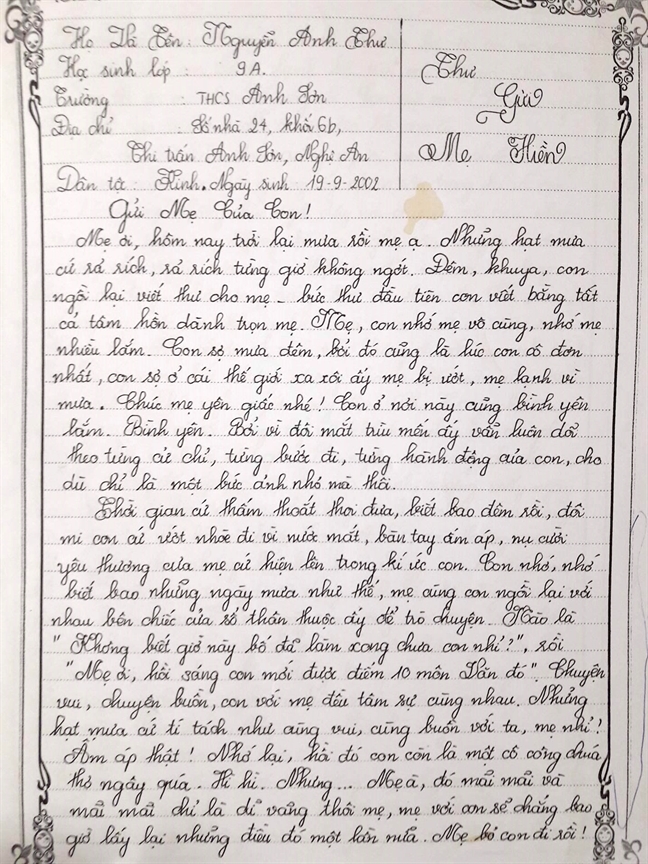 Họ Và Tên: Nguyễn Anh Thư
Học sinh lớp : 9A.
Trường : THCS Anh Sơn
Địa chỉ : Số nhà 24, khối 6b,
Thị trấn Anh Sơn, Nghệ An
Dân tộc: Kinh. Ngày sinh 19-9-2002
Thư
Gửi
Mẹ Hiền
Gửi Mẹ Của Con!
Mẹ ơi, hôm nay trời lại mưa rồi mẹ ạ. Những hạt mưa
cứ rả rích, rả rích từng giờ không ngớt. Đêm, khuya, con
ngồi lại viết thư cho mẹ - bức thư đầu tiên con viết bằng tất
cả tâm hồn dành trọn mẹ. Mẹ, con nhớ mẹ vô cùng, nhớ mẹ
nhiều lắm. Con sợ mưa đêm, bởi đó cũng là lúc con cô đơn
nhất, con sợ ở cái thế giới xa xôi ấy mẹ bị ướt, mẹ lạnh vì
mưa. Chúc mẹ yên giấc nhé! Con ở nơi này cũng bình yên
lắm. Bình yên. Bởi vì đôi mắt trìu mến ấy vẫn luôn dõi
theo từng cử chỉ, từng bước đi, từng hành động của con, cho
dù chỉ là một bức ảnh nhỏ mà thôi.
Thời gian cứ thấm thoắt thoi đưa, biết bao đêm rồi, đôi
mi con cứ ướt nhòe đi vì nước mắt, bàn tay ấm áp, nụ cười
yêu thương của mẹ cứ hiện lên trong kí ức con. Con nhớ, nhớ
biết bao những ngày mưa như thế, mẹ cùng con ngồi lại với
nhau bên chiếc cửa sổ thân thuộc ấy để trò chuyện. Nào là
"Không biết giờ này bố đã làm xong chưa con nhỉ?", rồi
"Mẹ ơi, hồi sáng con mới được điểm 10 môn Văn đó". Chuyện
vui, chuyện buồn, con với mẹ đều tâm sự cùng nhau. Những
hạt mưa cứ tí tách như cùng vui, cùng buồn với ta, mẹ nhỉ!
Ấm áp thật! Nhớ lại, hồi đó con còn là một cô công chúa
thơ ngây quá. Hì hì. Nhưng... Mẹ à, đó mãi mãi và
mãi mãi chỉ là dĩ vãng thôi mẹ, mẹ với con sẽ chẳng bao
giờ lấy lại những điều đó một lần nữa. Mẹ bỏ con đi rồi!